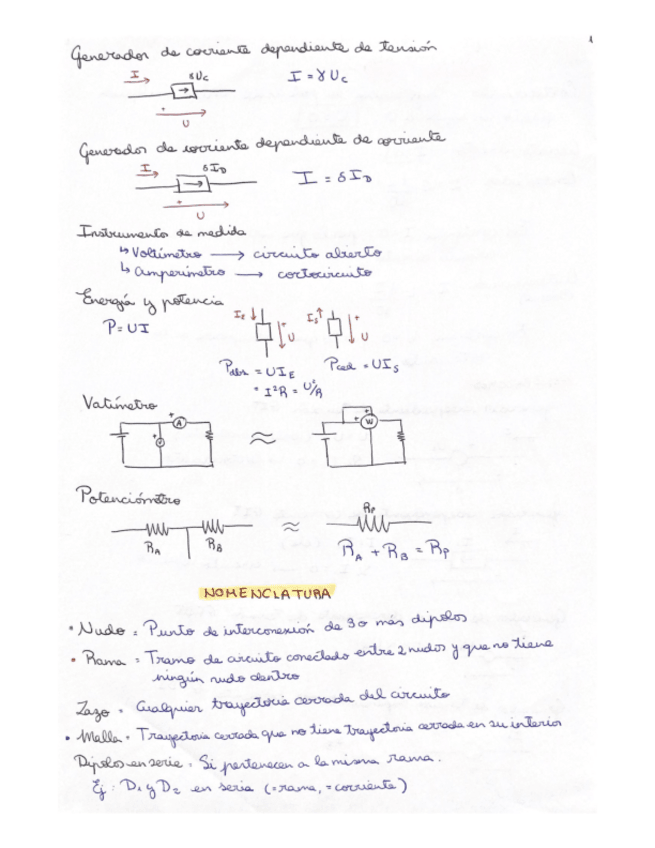 1
Generador de corriente dependiente de tensión
I γUc I = γUc
+ U
Generador de corriente dependiente de corriente
I δI_D I = δI_D
+ U
Instrumento de medida
↳ Voltímetro → circuito abierto
↳ Amperímetro → cortocircuito
Energía y potencia
P = UI I_E + U I_S + U
Pabs = UI_E Pced = UI_S
= I²R = U²/R
Vatímetro
+ A + ≈ + + W
Potenciómetro
R_A R_B ≈ Rp
R_A + R_B = Rp
NOMENCLATURA
• Nudo = Punto de interconexión de 3 o más dipolos
• Rama = Tramo de circuito conectado entre 2 nudos y que no tiene
ningún nudo dentro
Lazo = Cualquier trayectoria cerrada del circuito
• Malla = Trayectoria cerrada que no tiene trayectoria cerrada en su interior
Dipolos en serie = Si pertenecen a la misma rama.
Ej: D₁ y D₂ en serie (= rama, = corriente)